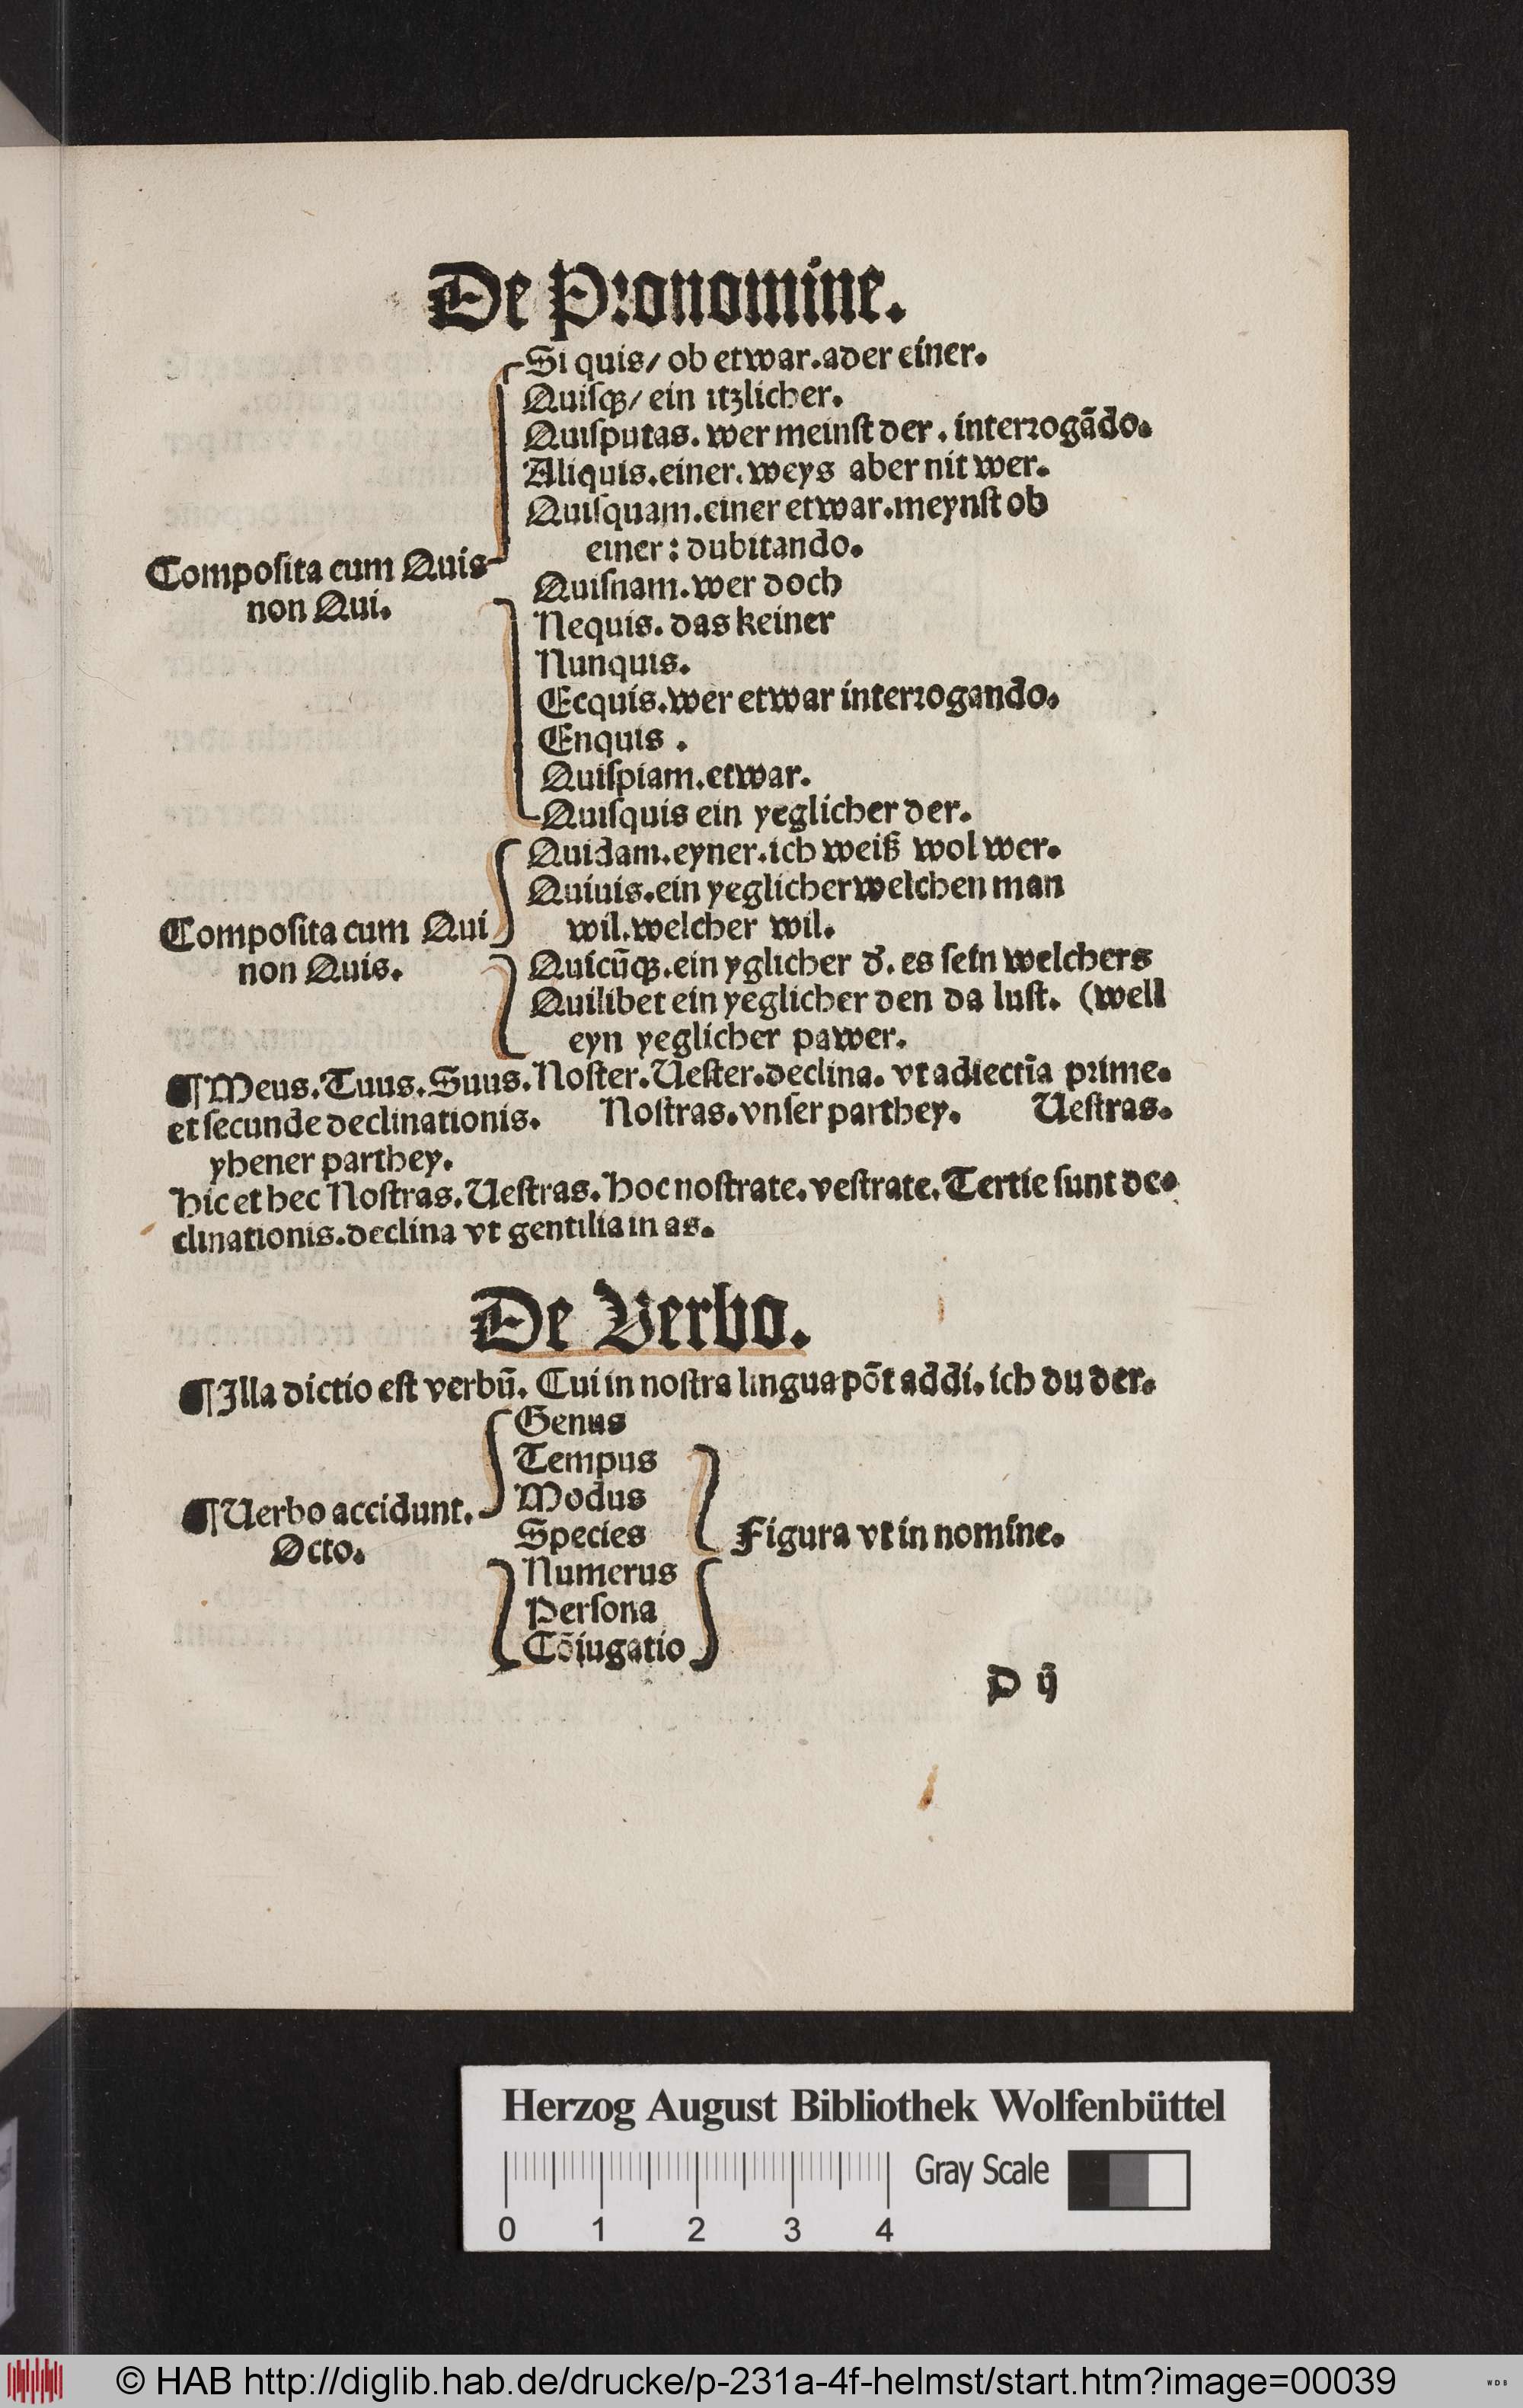 De Pronomine.
Si quis/ ob etwar.ader einer.
Quiſqꝫ/ ein itzlicher.
Quiſputas. wer meinſt der. interrogãdo.
Aliquis.einer.weys aber nit wer.
Quiſquam.einer etwar.meynſt ob
einer: dubitando.
Compoſita cum Quis
non Qui.
Quiſnam.wer doch
Nequis.das keiner
Nunquis.
Ecquis.wer etwar interrogando.
Enquis.
Quiſpiam.etwar.
Quiſquis ein yeglicher der.
Quidam.eyner.ich weiß wol wer.
Quiuis.ein yeglicher welchen man
wil.welcher wil.
Compoſita cum Qui
non Quis.
Quicũqꝫ.ein yglicher d̕. es ſein welchers
Quilibet ein yeglicher den da luſt. (well
eyn yeglicher pawer.
¶Meus.Tuus.Suus.Noſter.Ueſter.declina. vt adiectĩa prime.
et ſecunde declinationis. Noſtras.vnſer parthey. Ueſtras.
yhener parthey.
Hic et hec Noſtras.Ueſtras.Hoc noſtrate.veſtrate.Tertie ſunt de-
clinationis.declina vt gentilia in as.
De Verbo.
¶Illa dictio eſt verbũ. Cui in noſtra lingua põt addi. ich du der.
Genus
Tempus
Modus
Species
¶Uerbo accidunt.
Octo.
Figura vt in nomine.
Numerus
Perſona
Cõiugatio
D ij
Herzog August Bibliothek Wolfenbüttel
Gray Scale
0 1 2 3 4
© HAB http://diglib.hab.de/drucke/p-231a-4f-helmst/start.htm?image=00039
WDB